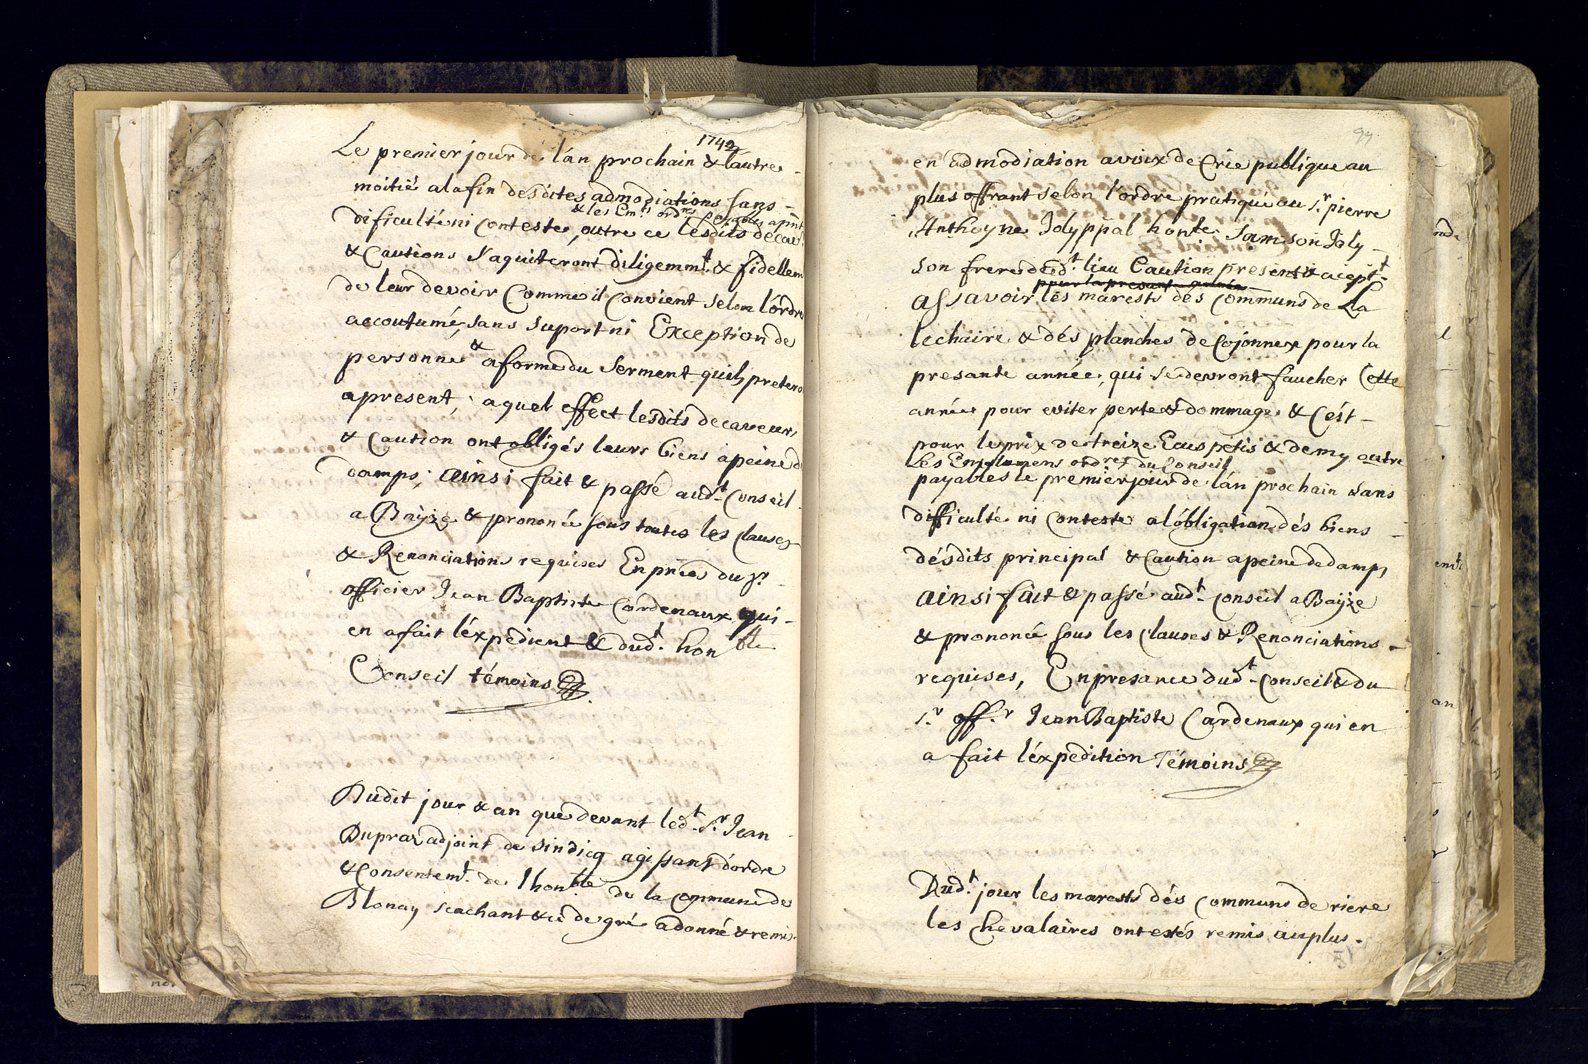 1742
Le premier jour de lán prochain & lautre
moitié a la fin desdites admodiations sans
& les Em.ts ord.res
dificulté ni conteste, outre ce lesdits decav
& Cautions saquiteront diligemm.t & fidellem
de leur devoir Comme il Convient selon lórdre
accoutumé, sans suport ni Exception de
personne & a forme du serment quils preteron
apresent, aquel effect lesdits decaveurs
& Caution ont obligés leurs biens a peine de
damps; ainsi fait & passé aud.t Conseil
a Bayze & prononcé sous toutes les Clauses
& Renonciations requises En pnces du s.r
officier Jean Baptiste Cardenaux qui
en a fait léxpedient & dud.t hon ble
Conseil témoins
Dudit jour & an que devant led.t S.r Jean
Dupraz adjoint de sindicq agissant dórdre
& Consentem.t de lhon ble de la Commune de
Blonay scachant & ce de gré a donné & remis
97
en admodiation a voix de Crie publique au
plus offrant selon lórdre pratique au S.r pierre
Anthoyne Joly ppal honle Samson Joly
son frere dud.t lieu Caution present & acept.t
ppur la presant année
assavoir les marests dés Communs de La
lechaire & dés planches de Cojonnex pour la
presante année, qui se devront faucher Cette
année pour eviter perte & dommage & Cést
pour le prix de treize Ecus petis & demy outre
les Emolumens ord.res du Conseil
payables le premier jour de lán prochain sans
difficulté ni Conteste a lóbligation dés biens
désdits principal & Caution a peine de damps
ainsi fait & passé aud.t Conseil a Bayze
& prononcé sous les Clauses & Renonciations
requises, En presance dud.t Conseil & du
S.r off.r Jean Baptiste Cardenaux qui en
a fait léxpedition Témoins
Dud.t jour les marests dés Communs de riere
les Chevalaires ont estés remis au plus